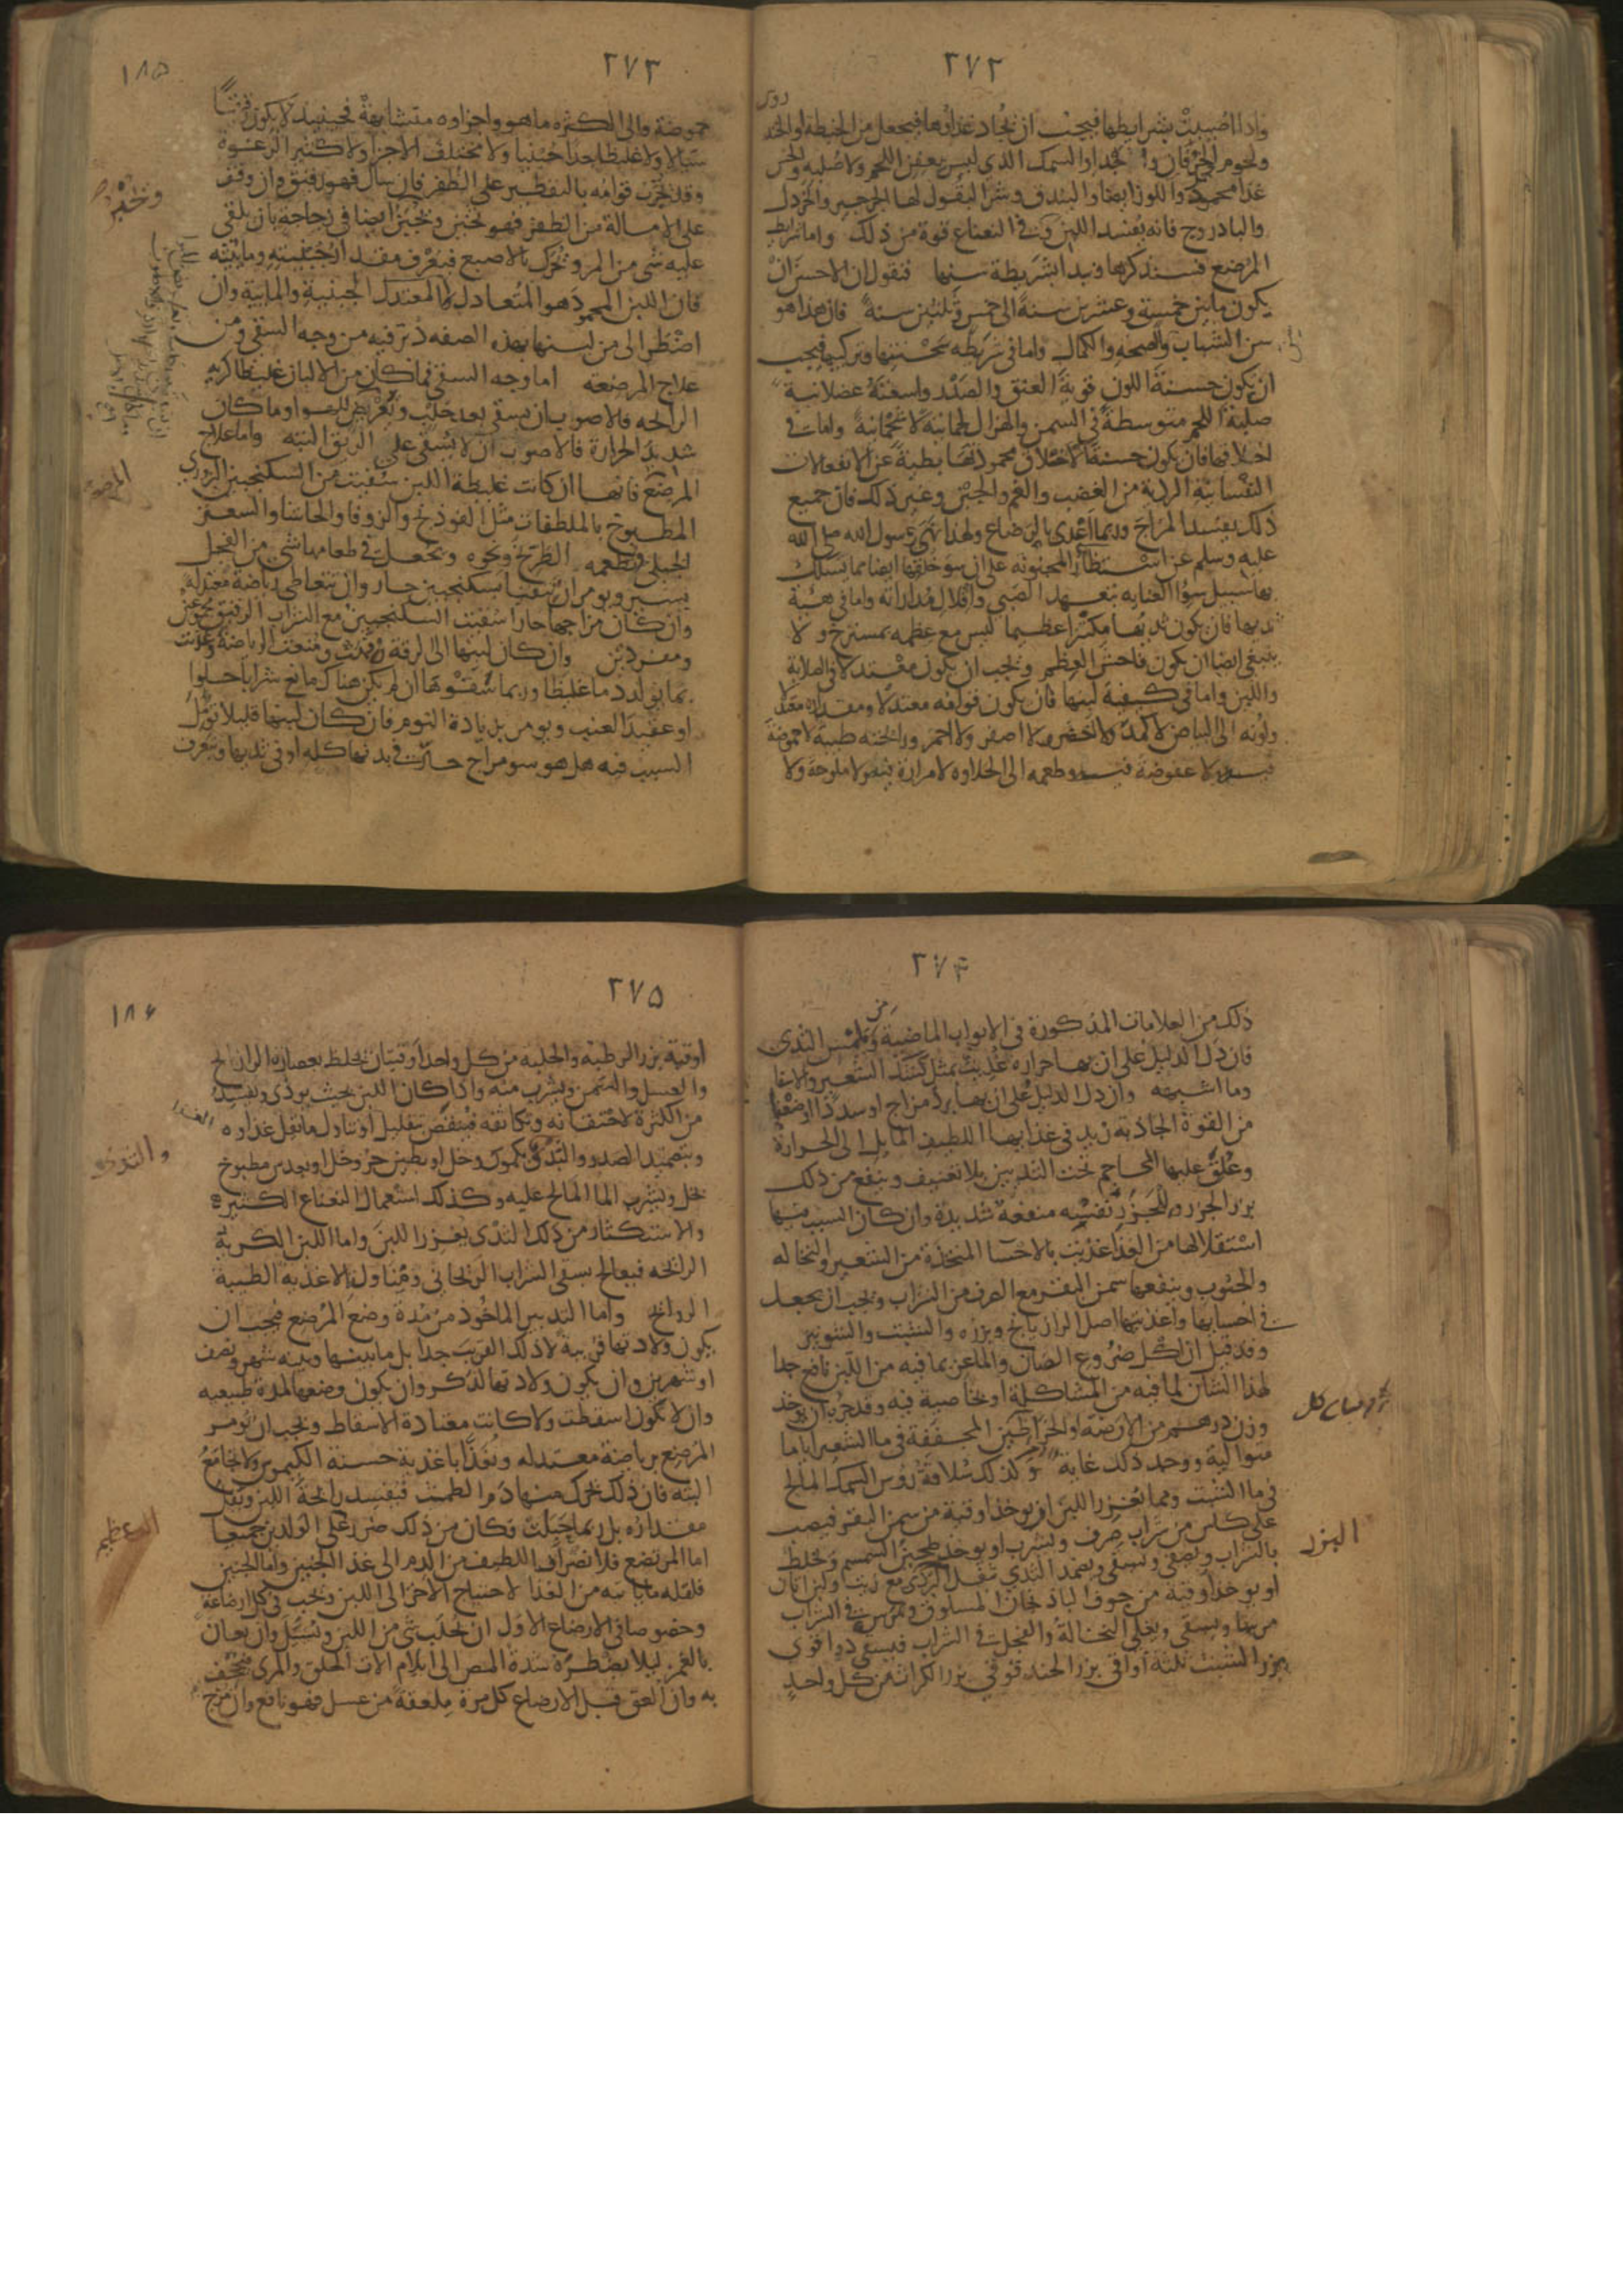 ٢٧٢
واذا اصيبت بشرايطها فيجب ان يجاد غذاؤها فيجعل من الحنطة والخند
روس
ولحوم الخرفان والجدا والسمك الذي ليس بعفن اللحم ولا صلبه والخس
غذا محمود واللوز ايضا والبندق وشر البقول لها الجرجير والخردل
والبادروج فانه يفسد اللبن وفي النعناع قوة من ذلك واما شرايط
المرضع فسنذكرها ونبدا بشريطة سنها فنقول ان الاحسن ان
يكون ما بين خمسة وعشرين سنة الى خمس وثلثين سنة فان هذا هو
سن الشباب والصحه والكمال واما في شريطه سحنتها وتركيبها فيجب
ان يكون حسنة اللون قوية العنق والصدر واسعته عضلانية
صلبة اللحم متوسطة في السمن والهزال لحمانية لا شحمانية واما في
اخلاقها فان يكون حسنة الاخلاق محمودتها بطية عن الانفعالات
النفسانية الردية من الغضب والغم والجبن وغير ذلك فان جميع
ذلك يفسد المزاج وربما اعدى بالرضاع ولهذا نهى رسول الله صلى الله
عليه وسلم عن استظار المجنونه على ان سو خلقها ايضا مما يسلك
بها سبيل سوء العنايه بتعهد الصبي واقلال مداراته واما في هيئة
ثديها فان يكون ثديها مكتنزا عظيما ليس مع عظمه بمسترخ ولا
ينبغي ايضا ان يكون فاحش العظم ويجب ان يكون معتدلا في الصلابة
واللين واما في كيفية لبنها فان يكون قوامه معتدلا ومقداره معتدلا
ولونه الى البياض لا كمد ولا اخضر ولا اصفر ولا احمر ورائحته طيبة لا حموضة
فيه ولا عفوضة فيه وطعمه الى الحلاوه لا مرارة فيه ولا ملوحة ولا
٢٧٣
١٨٥
حموضة والى الكثره ما هو واجزاوه متشابهة فحينيذ لا يكون رقيقا
سيالا ولا غليظا جدا جبنيا ولا مختلف الاجزا ولا كثير الرغوة
وقد يجرب قوامه بالتقطير على الظفر فان سال فهو رقيق وان وقف
على الاسالة من الظفر فهو ثخين ويجرب ايضا في زجاجة بان يلقى
عليه شي من المر ويحرك بالاصبع فيعرف مقدار جبنيته ومائيته
فان اللبن المحمود هو المتعادل المعتدل الجبنية والمائية وان
اضطر الى من لبنها بهذه الصفه دبر فيه من وجه السقي ومن
علاج المرضعه اما وجه السقي فما كان من الالبان غليظا كريه
الرائحه فالاصوب ان يسقى بعد حلب وتعريض للهوا وما كان
شديد الحرارة فالاصوب ان لا يسقى على الريق البته واما علاج
المرضع فانها ان كانت غليظة اللبن سقيت من السكنجبين البزوري
المطبوخ بالملطفات مثل الفوذنج والزوفا والحاشا والسعتر
الجبلي وتطعمه الطريخ ونحوه ويجعل في طعامها شي من الفجل
يسير ويومر ان تتقيا بسكنجبين حار وان تتعاطى رياضة معتدلة
وان كان مزاجها حارا سقيت السكنجبين مع الشراب الرقيق مجموعين
ومفردين وان كان لبنها الى الرقة رفهت ومنعت الرياضة وغذيت
بما يولد دما غليظا وربما سقوها ان لم يكن هناك مانع شرابا حلوا
او عقيد العنب ويومر بزيادة النوم فان كان لبنها قليلا تومل
السبب فيه هل هو سو مزاج حار في بدنها كله او في ثديها ويتعرف
٢٧۴
ذلك من العلامات المذكورة في الابواب الماضية ويلمس الثدي
فان دل الدليل على ان بها حراره غذيت بمثل كشك الشعير والاسفا
وما اشبهه وان دل الدليل على ان بها برد مزاج او سددا او ضعفا
من القوة الجاذبة زيد في غذايها اللطيف المايل الى الحرارة
وعلق عليها المحاجم تحت الثديين بلا تعنيف وينفع من ذلك
بزر الجزر وللجزر نفسه منفعة شديدة وان كان السبب فيها
استقلالها من الغذا غذيت بالاحسا المتخذة من الشعير والنخاله
والحبوب وينفعها سمن البقر مع الصرف من الشراب ويجب ان يجعل
في احسايها واغذيتها اصل الرازيانج وبزره والشبث والشونيز
وقد قيل ان اكل ضروع الضان والماعز بما فيه من اللبن نافع جدا
لهذا الشان لما فيه من المشاكلة او لخاصية فيه وقد جرب ان يوخذ
وزن درهم من الارضة او الخراطين المجففة في ما الشعير اياما
متوالية ووجد ذلك غاية وكذلك سلاقة رؤس السمك المالح
في ما الشبث ومما يغزر اللبن ان يوخذ اوقية من سمن البقر فيصب
على كاس من شراب صرف ويشرب او يوخذ طحين السمسم ويخلط
البزر
بالشراب ويصفى ويسقى ويضمد الثدي بثفل النردين مع زيت ولبن اتان
او يوخذ اوقية من جوف الباذنجان المسلوق ويمرس في الشراب
مرسا ويسقى ويغلى النخالة والفجل في الشراب فيسقى دوا قوي
بزر الشبث ثلثة اواقي بزر الحندقوقي بزر الكراث من كل واحد
٢٧٥
١٨۶
اوقية بزر الرطبة والحلبه من كل واحد اوقيتان يخلط بعصارة الرازيانج
والعسل والسمن ويشرب منه واذا كان اللبن بحيث يوذي ويفسد
من الكثرة لاحتقانه وتكاثفه فينقص بتقليل وتناول ما يقل غذاوه
وبتضميد الصدر والثدي بكمون وخل او بطين حر وخل او بعدس مطبوخ
بخل ويشرب الما المالح عليه وكذلك استعمال النعناع الكثير
والاستكثار من ذلك الثدي يغزر اللبن واما اللبن الكريه
الرائحه فيعالج بسقي الشراب الريحاني ومناولة الاغذيه الطيبة
الروائح واما التدبير الماخوذ من مدة وضع المرضع فيجب ان
يكون ولادتها قريبة لا ذلك القريب جدا بل ما بينها وبينه شهر ونصف
او شهرين وان يكون ولادتها لذكر وان يكون وضعها لمدة طبيعيه
وان لا يكون اسقطت ولا كانت معتادة الاسقاط ويجب ان تومر
المرضع برياضة معتدله وتغذا باغذية حسنة الكيموس ولا تجامع
البته فان ذلك يحرك منها دم الطمث فيفسد رائحة اللبن ويقل
مقداره بل ربما حبلت وكان من ذلك ضرر على الولدين جميعا
العظيم
اما المرتضع فلانصراف اللطيف من الدم الى غذا الجنين واما الجنين
فلقله ما ياتيه من الغذا لاحتياج الاخر الى اللبن ويجب في كل ارضاعة
وخصوصا في الارضاع الاول ان يحلب شي من اللبن ويسيل وان يعان
بالغمز ليلا يضطره شدة المص الى ايلام الات الحلق والمري فيجحف
به وان العق قبل الارضاع كل مرة ملعقة من عسل فهو نافع وان مزج